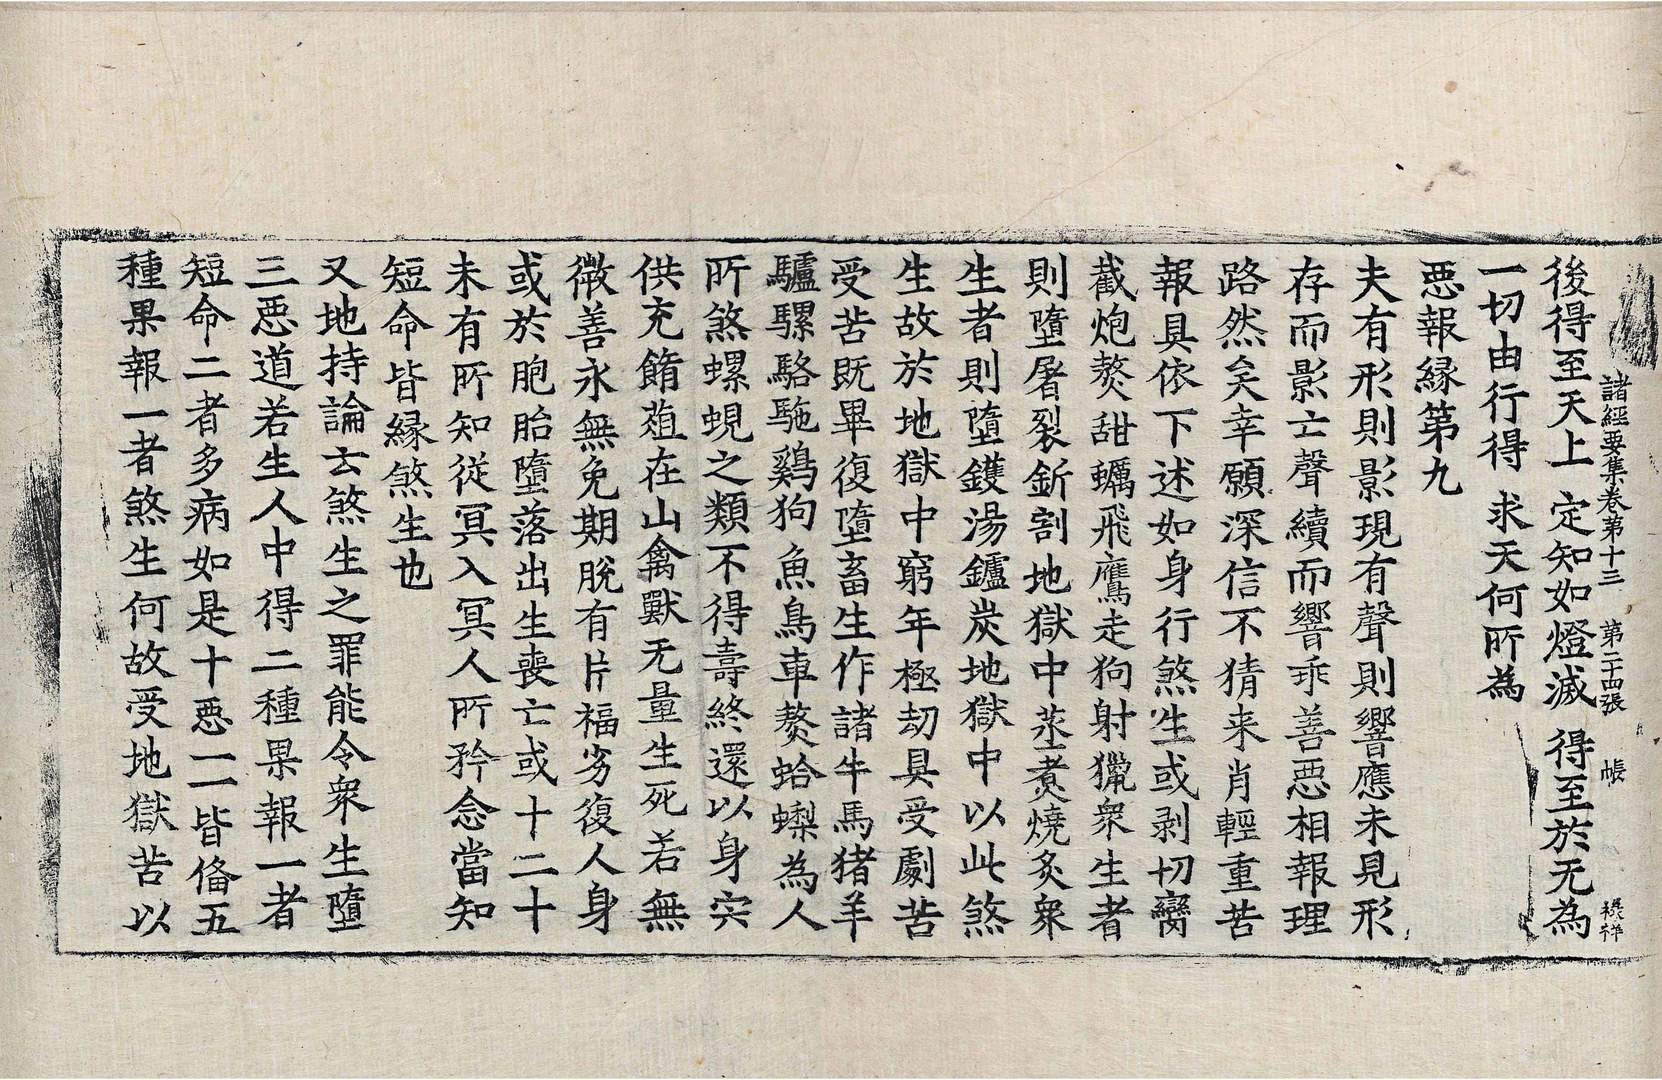 諸經要集卷第十三 第二十四張 帳
後得至天上 定知如燈滅 得至於无為
一切由行得 求天何所為
惡報縁第九
夫有形則影現有聲則響應未見形
存而影亡聲續而響乖善惡相報理
路然矣幸願深信不猜来肖輕重苦
報具依下述如身行煞生或剥切臠
截炮熬甜蠣飛鷹走狗射獵衆生者
則墮屠裂釿割地獄中蒸煮燒炙衆
生者則墮鑊湯鑪炭地獄中以此煞
生故於地獄中窮年極劫具受劇苦
受苦既畢復墮畜生作諸牛馬猪羊
驢騾駱駞鷄狗魚鳥車熬蛤蠏為人
所煞螺蜆之類不得壽終還以身宍
供充餚葅在山禽獸无量生死若無
微善永無免期脫有片福劣復人身
或於胞胎墮落出生喪亡或十二十
未有所知從冥入冥人所矜念當知
短命皆縁煞生也
又地持論云煞生之罪能令衆生墮
三惡道若生人中得二種果報一者
短命二者多病如是十惡一一皆俻五
種果報一者煞生何故受地獄苦以